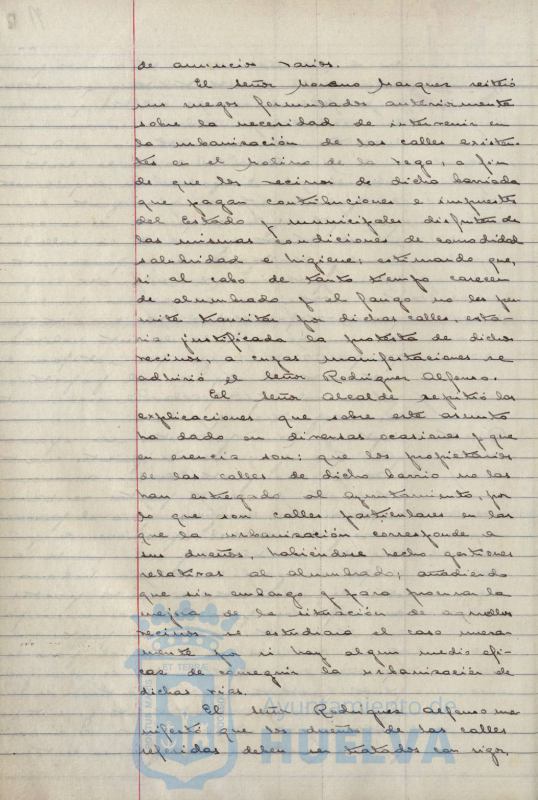 de anuncios varios.
El Señor Moreno Marquez reiteró
sus ruegos formulados anteriormente
sobre la necesidad de intervenir en
la urbanización de las calles existen-
tes en el Molino de la Vega, a fin
de que los vecinos de dicha barriada
que pagan contribuciones e impuestos
del Estado y municipales disfruten de
las mismas condiciones de comodidad
salubridad e higiene; estimando que,
si al cabo de tanto tiempo carecen
de alumbrado y el fango no les per
mite transitar por dichas calles, esta-
ria justificada la protesta de dichos
vecinos, a cuyas manifestaciones se
adhirió el Señor Rodriguez Alfonso.
El Señor Alcalde repitió las
explicaciones que sobre este asunto
ha dado en diversas ocasiones y que
en esencia son: que los propietarios
de las calles de dicho barrio no las
han entregado al Ayuntamiento, por
lo que son calles particulares en las
que la urbanización corresponde a
sus dueños, habiéndose hecho gestiones
relativas al alumbrado; añadiendo
que sin embargo y para procurar la
mejora de la situación de aquellos
vecinos se estudiara el caso nueva-
mente por si hay algun medio efi-
caz de conseguir la urbanización de
dichas vias.
El Señor Rodriguez Alfonso ma
nifestó que los dueños de las calles
referidas deben ser tratados con rigor,
Ayuntamiento de
HUELVA